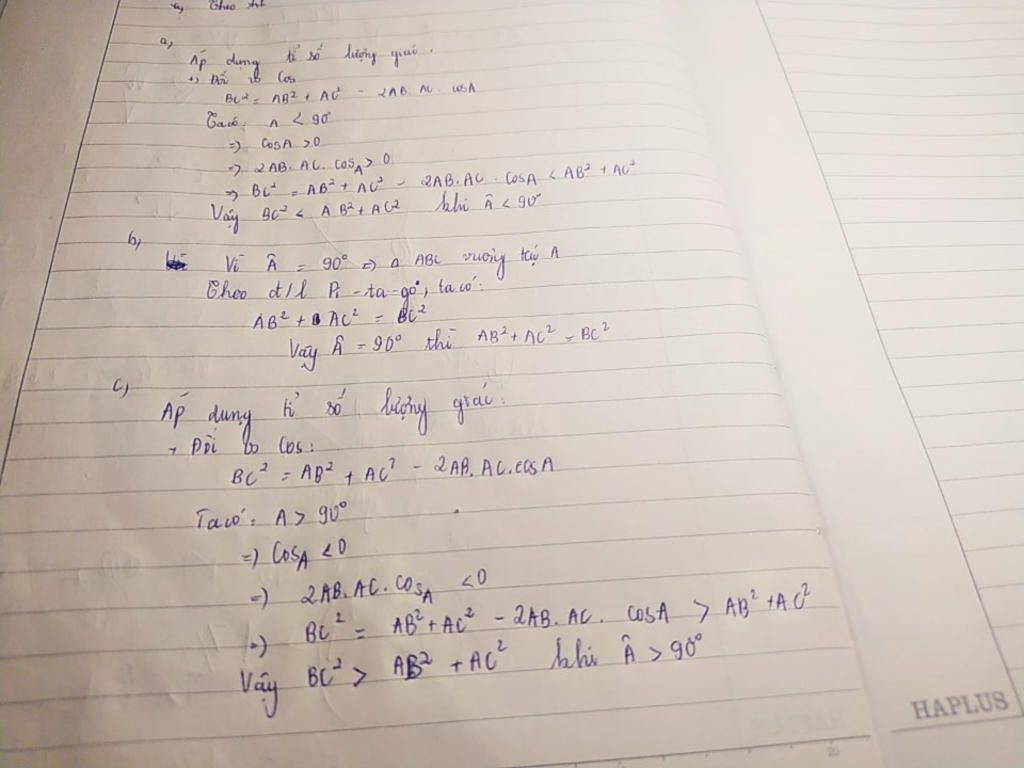 a, Theo
a,
Áp dụng tỉ số lượng giác.
+, Đối vs Cos
BC² = AB² + AC² - 2AB. AC. cosA
Ta có: A < 90°
=> cosA > 0
=> 2AB. AC. cosA > 0
=> BC² = AB² + AC² - 2AB.AC. cosA < AB² + AC²
Vậy BC² < AB² + AC² khi Â < 90°
b,
Vì Â = 90° => Δ ABC vuông tại A
Theo đ/l Pi-ta-go, ta có:
AB² + AC² = BC²
Vậy Â = 90° thì AB² + AC² = BC²
c,
Áp dụng tỉ số lượng giác:
+ Đối vs Cos:
BC² = AB² + AC² - 2AB. AC. cosA
Ta có: A > 90°
=> CosA < 0
=> 2AB. AC. cosA < 0
=> BC² = AB² + AC² - 2AB. AC. cosA > AB² + AC²
Vậy BC² > AB² + AC² khi Â > 90°
HAPLUS